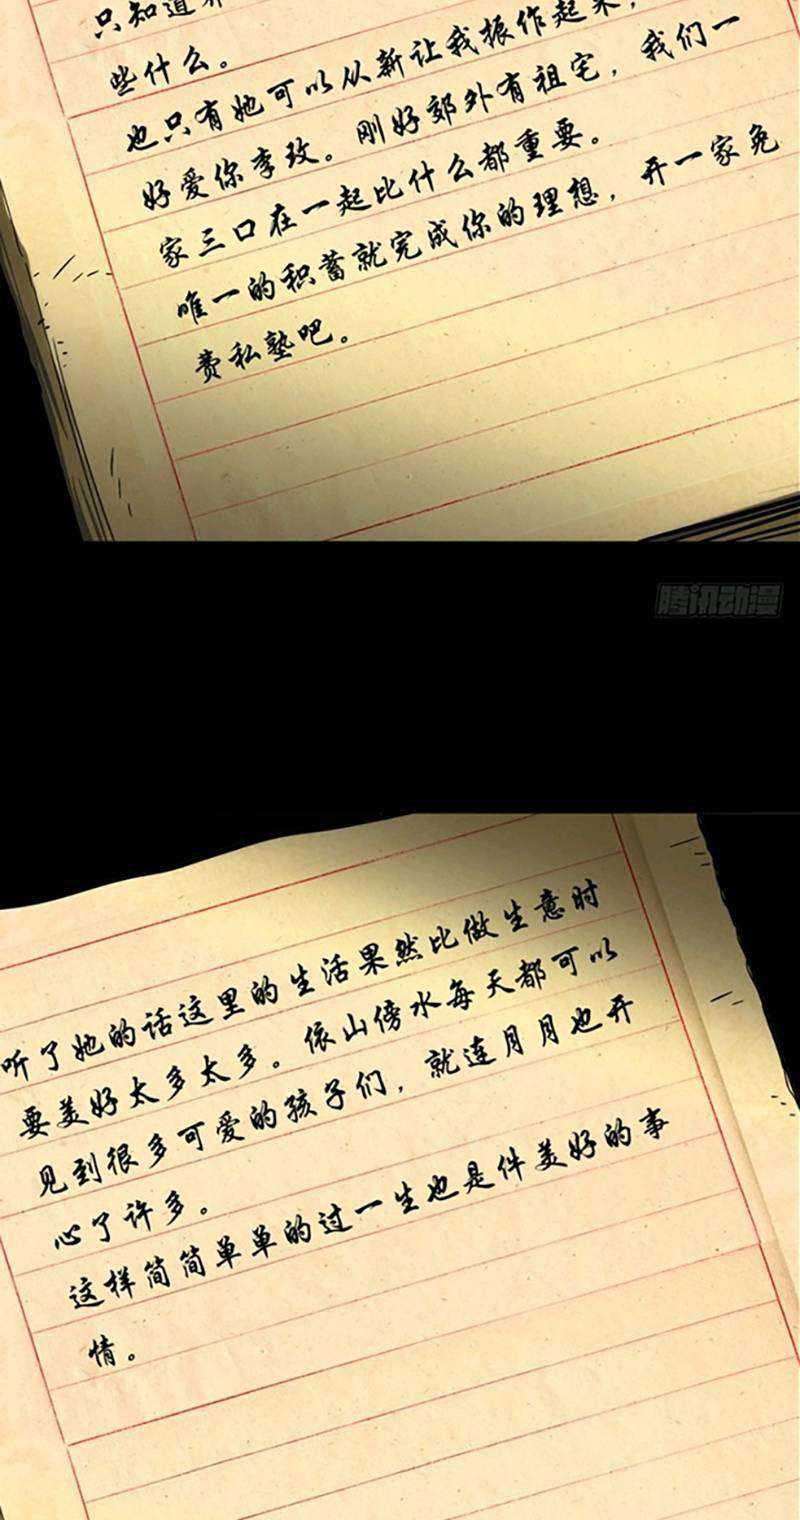 只知道
些什么。
也只有她可以从新让我振作起来，
好爱你李玟。刚好郊外有祖宅，我们一
家三口在一起比什么都重要。
唯一的积蓄就完成你的理想，开一家免
费私塾吧。
腾讯动漫
听了她的话这里的生活果然比做生意时
要美好太多太多。依山傍水每天都可以
见到很多可爱的孩子们，就连月月也开
心了许多。
这样简简单单的过一生也是件美好的事
情。